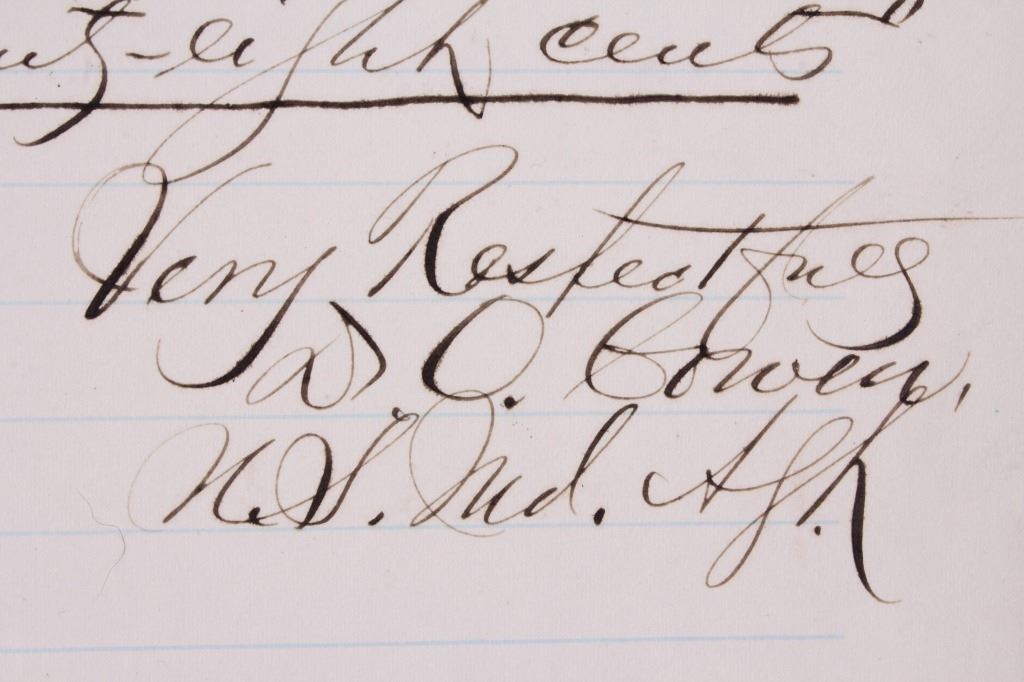 -eight cents"
Very Respectfully
D. O. Cowen,
U.S. Ind. Agt.